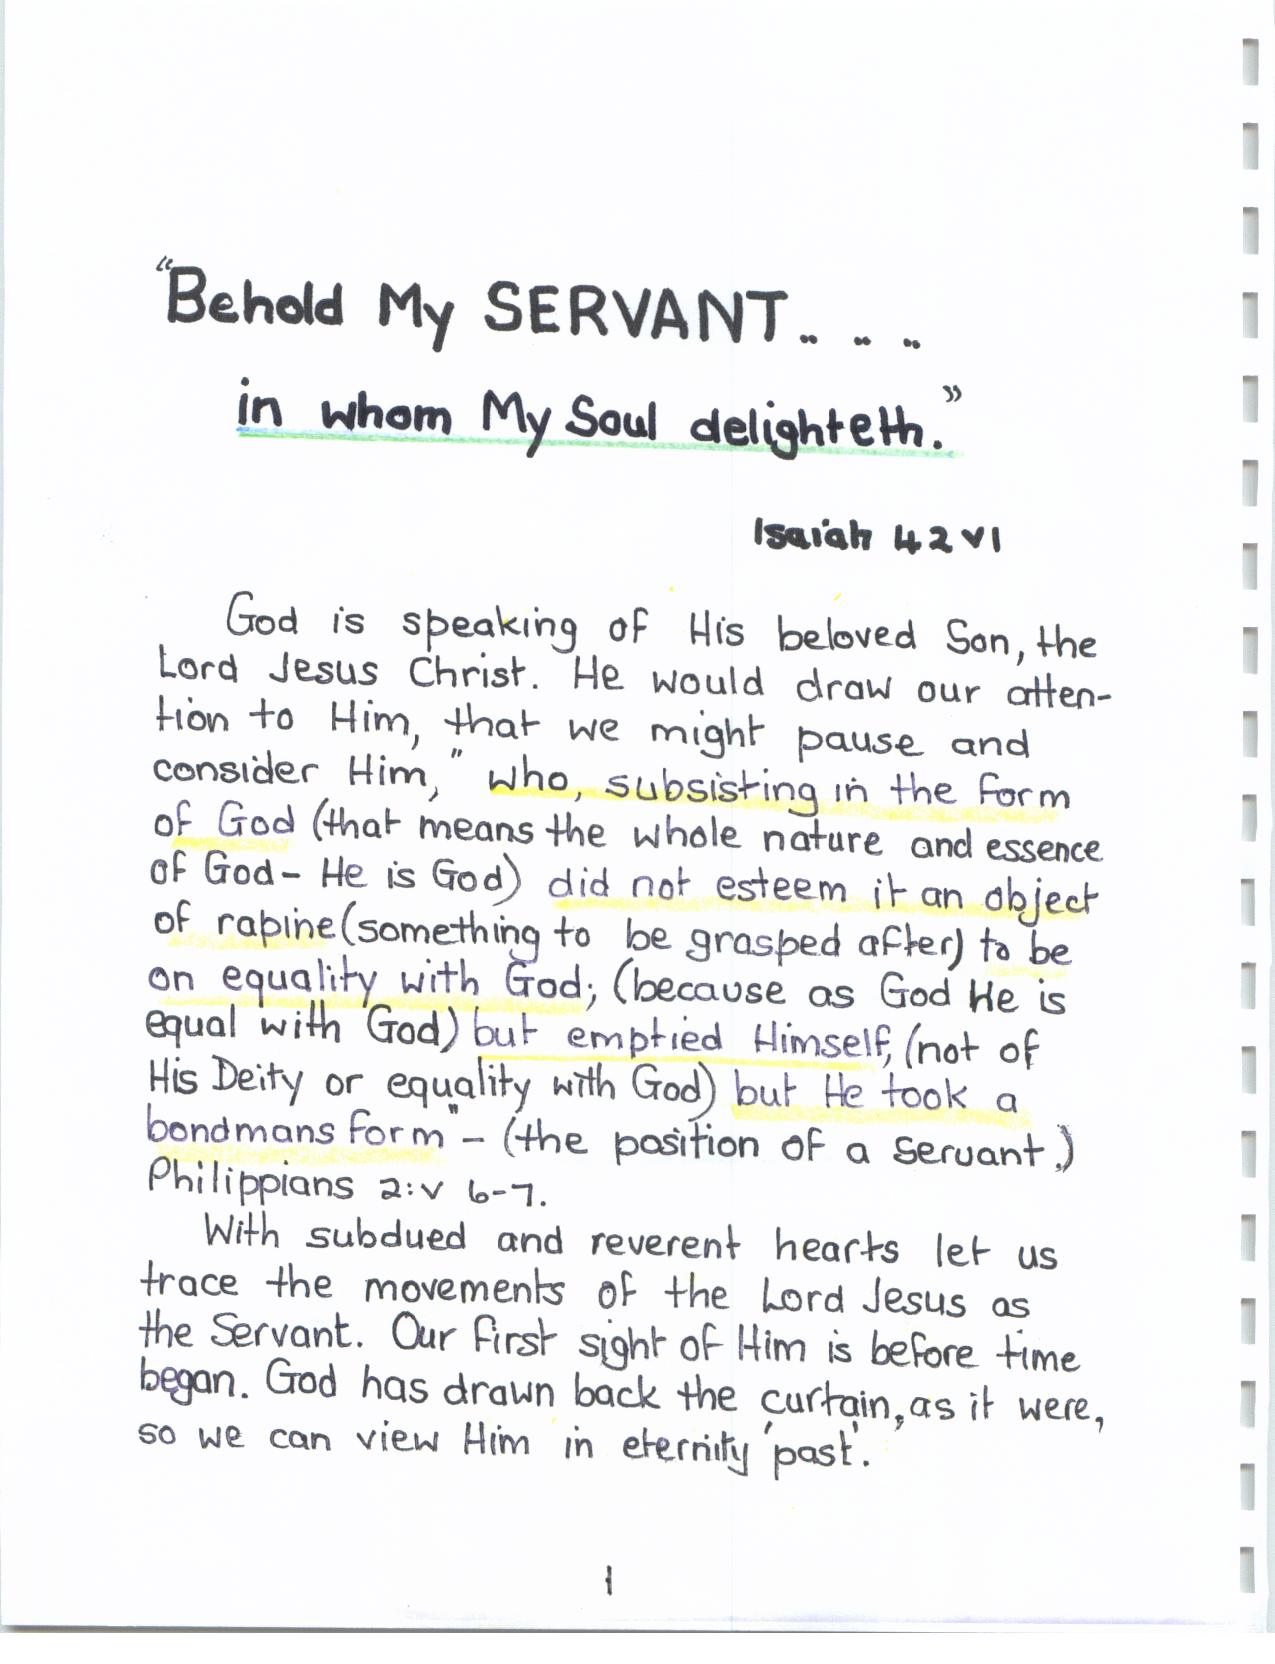 "Behold My SERVANT. . . .
in whom My Soul delighteth."
Isaiah 42 v1
God is speaking of His beloved Son, the
Lord Jesus Christ. He would draw our atten-
tion to Him, that we might pause and
consider Him, "who, subsisting in the form
of God (that means the whole nature and essence
of God- He is God) did not esteem it an object
of rapine (something to be grasped after) to be
on equality with God; (because as God He is
equal with God) but emptied Himself, (not of
His Deity or equality with God) but He took a
bondmans form" - (the position of a servant.)
Philippians 2:v 6-7.
With subdued and reverent hearts let us
trace the movements of the Lord Jesus as
the Servant. Our first sight of Him is before time
began. God has drawn back the curtain, as it were,
so we can view Him in eternity 'past'.
1